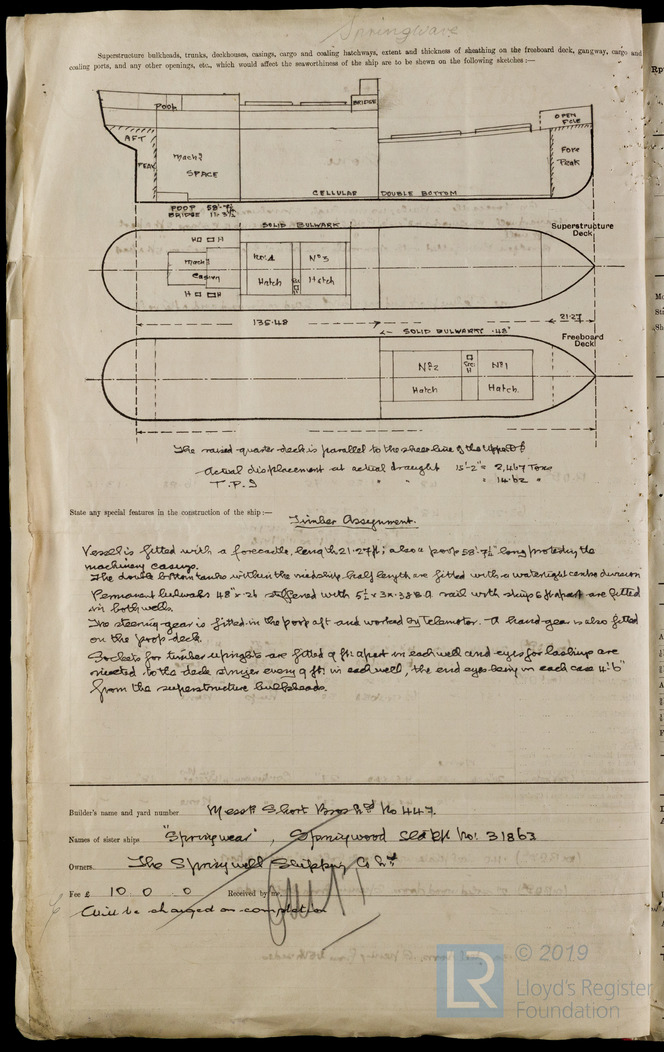 Springwave
Superstructure bulkheads, trunks, deckhouses, casings, cargo and coaling hatchways, extent and thickness of sheathing on the freeboard deck, gangway, cargo and
coaling ports, and any other openings, etc., which would affect the seaworthiness of the ship are to be shewn on the following sketches :—
POOP
BRIDGE
OPEN
FCLE
AFT
PEAK
Machy
SPACE
Fore
Peak
CELLULAR DOUBLE BOTTOM
POOP 58'-7½
BRIDGE 11'-3½
SOLID BULWARK
Superstructure
Deck
H H
Machy
Casing
H H
No 4
Hatch
No 3
Hatch
135.48
21.27
SOLID BULWARK 48"
Freeboard
Deck
No 2
Hatch
No 1
Hatch
The raised quarter deck is parallel to the sheer line of the Upper Dk
Actual displacement at actual draught 15'-2" = 2,467 Tons
T.P.I " " = 14.62 "
State any special features in the construction of the ship :—
Timber Assignment.
Vessel is fitted with a forecastle, length 21.27 ft; also a poop 58'-7½" long protecting the
machinery casing.
The double bottom tanks within the midship half length are fitted with a watertight centre division
Permanent bulwarks 48" x .26 stiffened with 5½ x 3 x .38 B.A rail with stays 6 ft apart are fitted
in both wells.
The steering gear is fitted in the poop aft and worked by Telemotor. A hand gear is also fitted
on the poop deck.
Sockets for timber uprights are fitted 9 ft apart in each well and eyes for lashings are
riveted to the deck stringer every 9 ft in each well, the end eyes being in each case 4'-6"
from the superstructure bulkheads.
Builder's name and yard number Messrs Short Bros Ltd No 447.
Names of sister ships "Springwear", Springwood Sld Rpt No: 31863
Owners The Springwell Shipping Co Ltd
Fee £ 10 0 0 Received by me,
Will be charged on completion
LR
© 2019
Lloyd's Register
Foundation